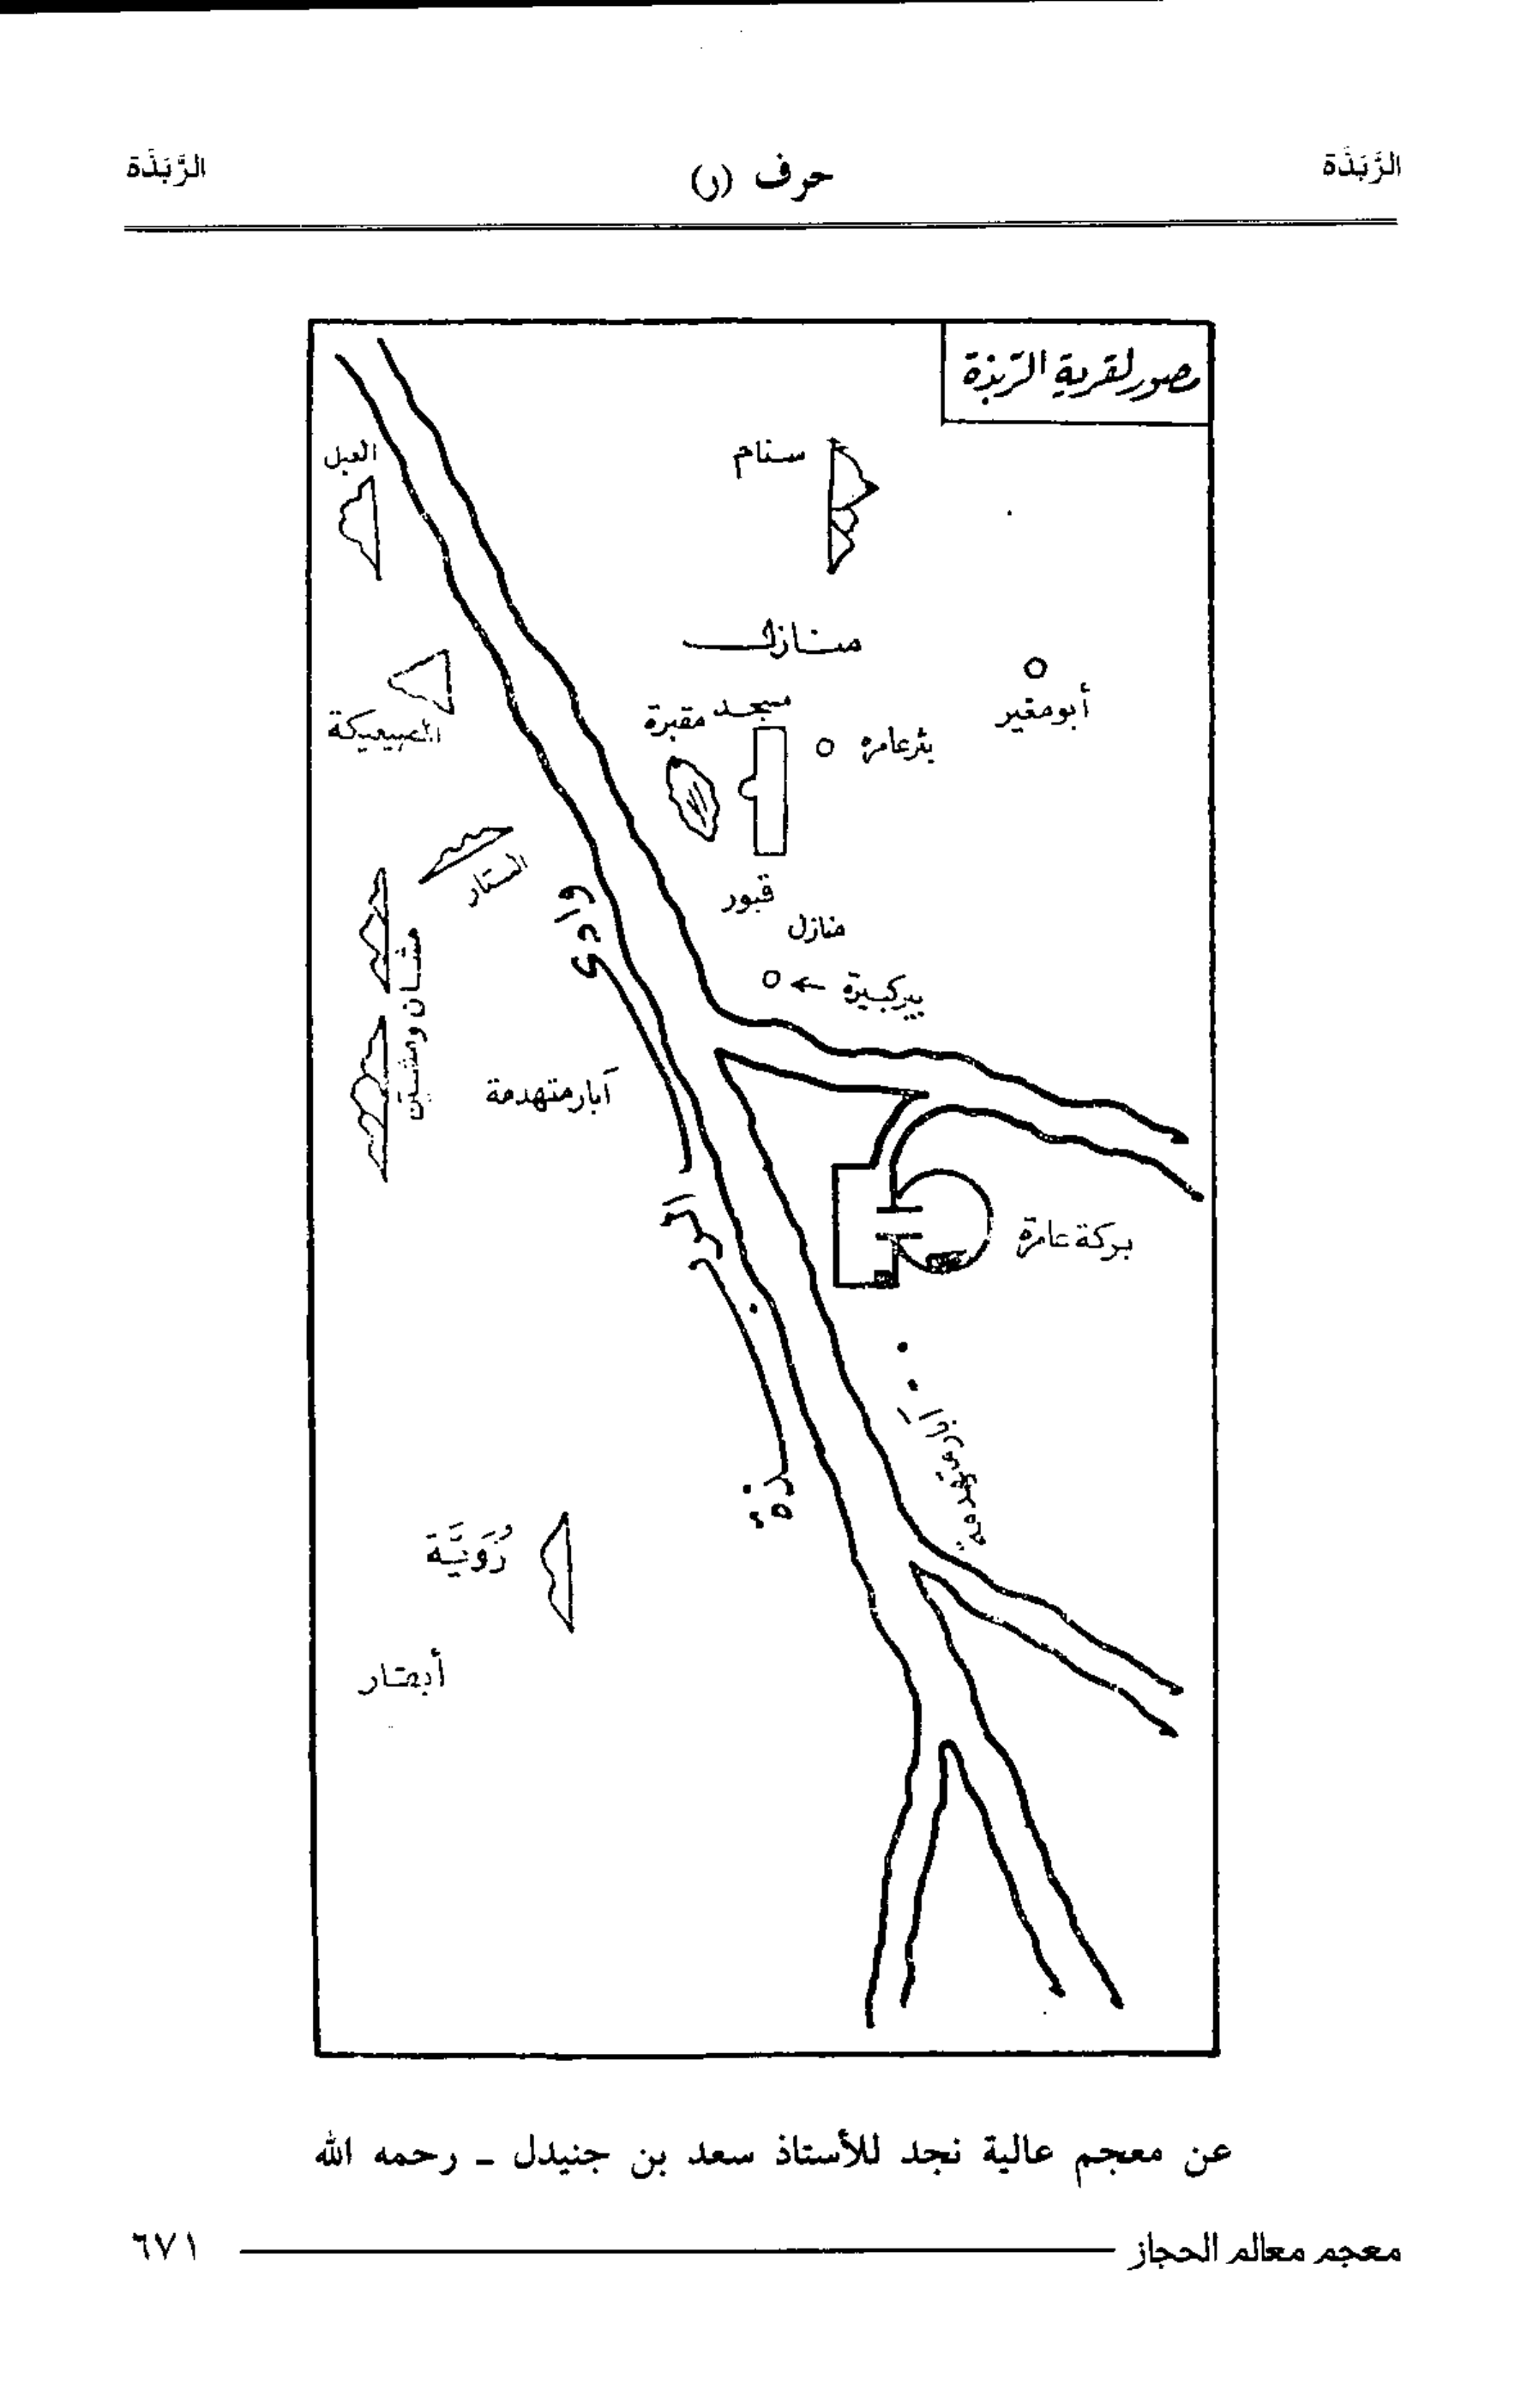 الرَّبَذَة
حرف (ر)
الرَّبَذَة
مصور لقرية الربذة
سنام
العبل
منازل
أبو مغير
مسجد
مقبرة
بئر عامرة
الستار
قبور
منازل
بير كبيرة
مشان ومشين
آبار متهدمة
وادي الربذة
بركة عامرة
عن معجم عالية نجد للأستاذ سعد بن جنيدل - رحمه الله
معجم معالم الحجاز
٦٧١